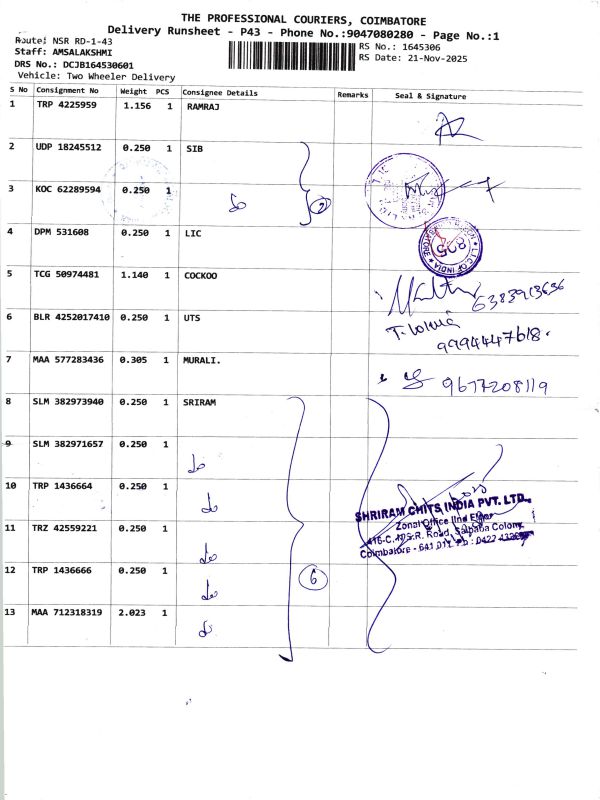 THE PROFESSIONAL COURIERS, COIMBATORE
Delivery Runsheet - P43 - Phone No.:9047080280 - Page No.:1
Route: NSR RD-1-43
RS No.: 1645306
Staff: AMSALAKSHMI
RS Date: 21-Nov-2025
DRS No.: DCJB164530601
Vehicle: Two Wheeler Delivery
S No Consignment No Weight PCS Consignee Details Remarks Seal & Signature
1 TRP 4225959 1.156 1 RAMRAJ
2 UDP 18245512 0.250 1 SIB
3 KOC 62289594 0.250 1 do 2
4 DPM 531608 0.250 1 LIC
L.I.C OF INDIA
5 TCG 50974481 1.140 1 COCKOO
6383913636
6 BLR 4252017410 0.250 1 UTS
9994447618.
7 MAA 577283436 0.305 1 MURALI.
9677208119
8 SLM 382973940 0.250 1 SRIRAM
9 SLM 382971657 0.250 1 do
10 TRP 1436664 0.250 1 do
SHRIRAM CHITS INDIA PVT. LTD.,
Zonal Office IInd Floor
11 TRZ 42559221 0.250 1 do
416-C, N.S.R. Road, Saibaba Colony
Coimbatore - 641 011. Ph : 0422
12 TRP 1436666 0.250 1 do 6
13 MAA 712318319 2.023 1 do